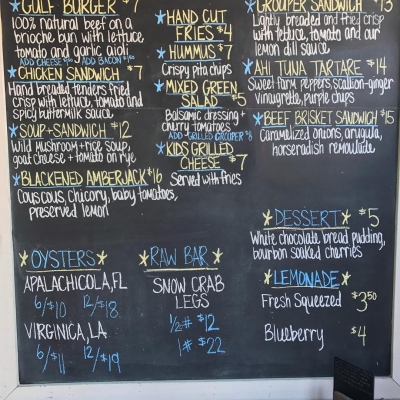 GULF BURGER $7
100% natural beef on a
brioche bun with lettuce
tomato and garlic aioli
ADD CHEESE ADD BACON
CHICKEN SANDWICH $7
Hand breaded tenders fried
crisp with lettuce, tomato and
spicy buttermilk sauce
SOUP + SANDWICH $12
Wild mushroom + rice soup,
goat cheese + tomato on rye
BLACKENED AMBERJACK $16
Couscous, chicory, baby tomatoes,
preserved lemon
HAND CUT
FRIES $4
HUMMUS $7
Crispy pita chips
MIXED GREEN
SALAD $5
Balsamic dressing +
cherry tomatoes
ADD GRILLED GROUPER
KIDS GRILLED
CHEESE $7
Served with fries
GROUPER SANDWICH $13
Lightly breaded and fried crisp
with lettuce, tomato and our
lemon dill sauce
AHI TUNA TARTARE $14
Sweet farm peppers, scallion-ginger
vinaigrette, purple chips
BEEF BRISKET SANDWICH $15
Caramelized onions, arugula,
horseradish remoulade
DESSERT $5
White chocolate bread pudding,
bourbon soaked cherries
OYSTERS
APALACHICOLA, FL
6/$10 12/$18
VIRGINICA, LA
6/$11 12/$19
RAW BAR
SNOW CRAB
LEGS
1/2# $12
1# $22
LEMONADE
Fresh Squeezed $3.50
Blueberry $4